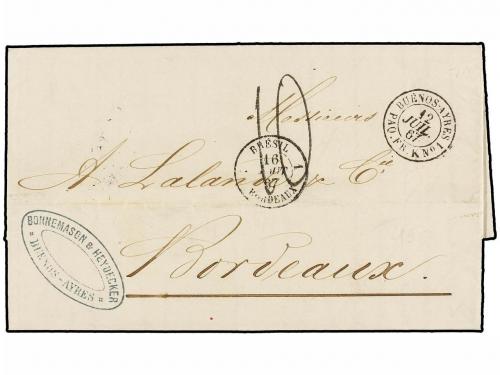 Messieurs
A. Lalande & Cie
Bordeaux.
10
BUENOS-AYRES
12
JUIL.
67
PAQ. FR. K No 1
BRESIL
16
BORDEAUX
1
BONNEMASON & HEYDECKER
BUENOS-AYRES